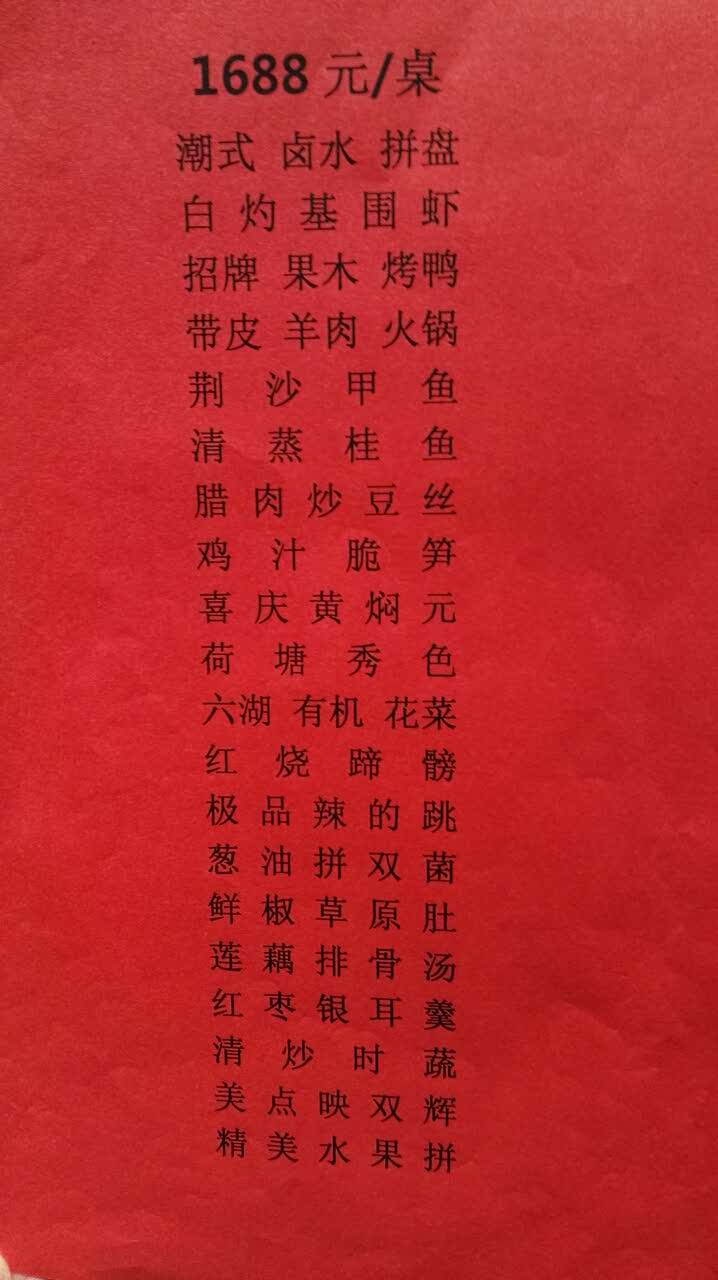 1688元/桌
潮式 卤水 拼盘
白灼基围虾
招牌 果木 烤鸭
带皮 羊肉 火锅
荆沙甲鱼
清蒸桂鱼
腊肉炒豆丝
鸡汁脆笋
喜庆黄焖元
荷塘秀色
六湖 有机 花菜
红烧蹄髈
极品辣的跳
葱油拼双菌
鲜椒草原肚
莲藕排骨汤
红枣银耳羹
清炒时蔬
美点映双辉
精美水果拼